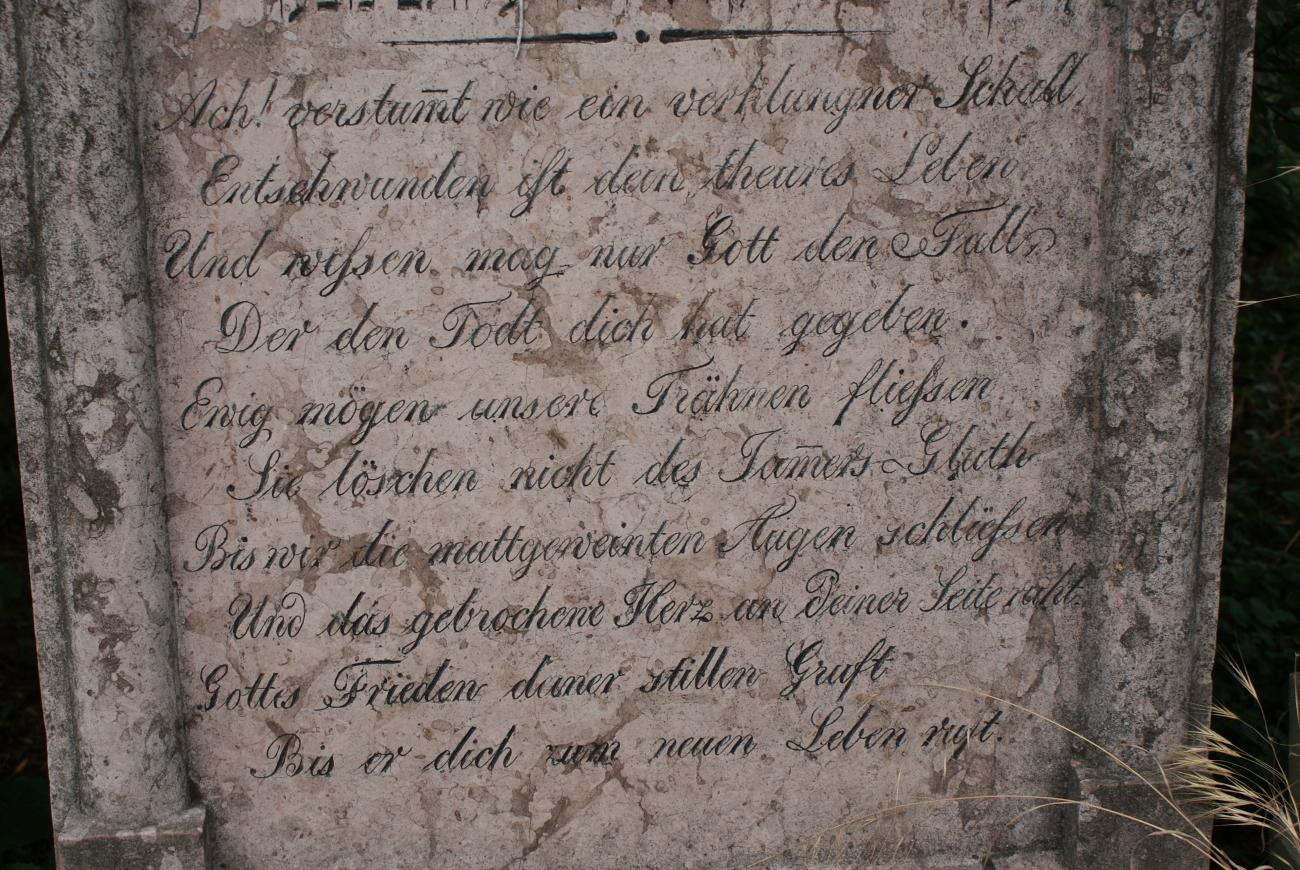 Ach! verstum̅t wie ein verklungner Schall,
Entschwunden ist dein theures Leben
Und wißen mag nur Gott den Fall,
Der den Todt dich hat gegeben.
Ewig mögen unsere Trähnen fließen
Sie löschen nicht des Jam̅ers Gluth
Bis wir die mattgeweinten Augen schließen
Und das gebrochene Herz an Deiner Seite ruht.
Gottes Frieden deiner stillen Gruft
Bis er dich zum neuen Leben ruft.